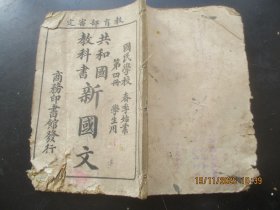 教育部審定
國民學校
春季始業
第四冊
學生用
共和國
教科書
新國文
商務印書館發行
15/11/2025